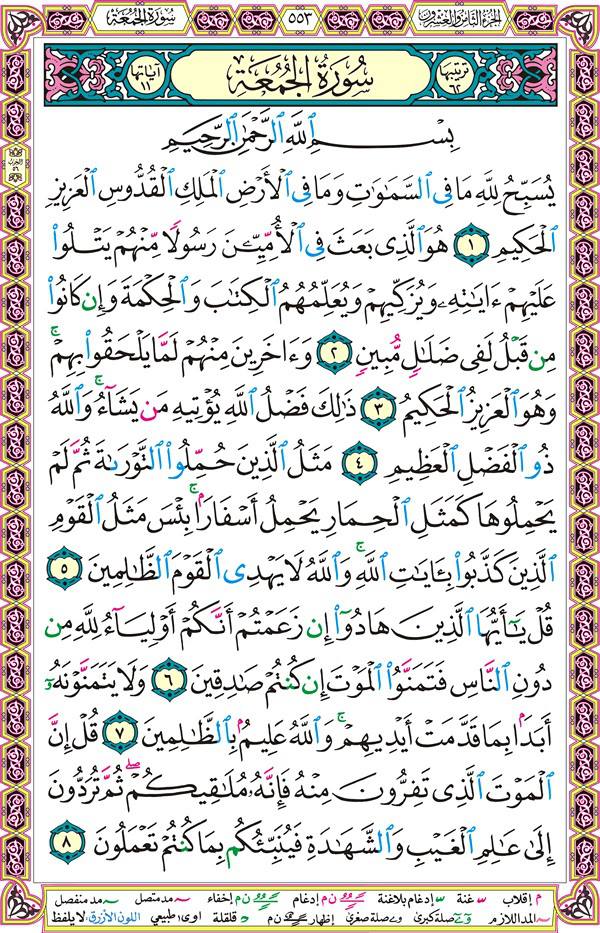 الجزء الثامن والعشرون
٥٥٣
سورة الجمعة
ترتيبها ٦٢
سُورَةُ الجُمُعَةِ
آياتها ١١
الحزب ٥٦
بِسْمِ ٱللَّهِ ٱلرَّحْمَٰنِ ٱلرَّحِيمِ
يُسَبِّحُ لِلَّهِ مَا فِى ٱلسَّمَٰوَٰتِ وَمَا فِى ٱلْأَرْضِ ٱلْمَلِكِ ٱلْقُدُّوسِ ٱلْعَزِيزِ
ٱلْحَكِيمِ ١ هُوَ ٱلَّذِى بَعَثَ فِى ٱلْأُمِّيِّـۧنَ رَسُولًا مِّنْهُمْ يَتْلُوا۟
عَلَيْهِمْ ءَايَٰتِهِۦ وَيُزَكِّيهِمْ وَيُعَلِّمُهُمُ ٱلْكِتَٰبَ وَٱلْحِكْمَةَ وَإِن كَانُوا۟
مِن قَبْلُ لَفِى ضَلَٰلٍ مُّبِينٍ ٢ وَءَاخَرِينَ مِنْهُمْ لَمَّا يَلْحَقُوا۟ بِهِمْ ۚ
وَهُوَ ٱلْعَزِيزُ ٱلْحَكِيمُ ٣ ذَٰلِكَ فَضْلُ ٱللَّهِ يُؤْتِيهِ مَن يَشَآءُ ۚ وَٱللَّهُ
ذُو ٱلْفَضْلِ ٱلْعَظِيمِ ٤ مَثَلُ ٱلَّذِينَ حُمِّلُوا۟ ٱلتَّوْرَىٰةَ ثُمَّ لَمْ
يَحْمِلُوهَا كَمَثَلِ ٱلْحِمَارِ يَحْمِلُ أَسْفَارًۢا ۚ بِئْسَ مَثَلُ ٱلْقَوْمِ
ٱلَّذِينَ كَذَّبُوا۟ بِـَٔايَٰتِ ٱللَّهِ ۚ وَٱللَّهُ لَا يَهْدِى ٱلْقَوْمَ ٱلظَّٰلِمِينَ ٥
قُلْ يَٰٓأَيُّهَا ٱلَّذِينَ هَادُوٓا۟ إِن زَعَمْتُمْ أَنَّكُمْ أَوْلِيَآءُ لِلَّهِ مِن
دُونِ ٱلنَّاسِ فَتَمَنَّوُا۟ ٱلْمَوْتَ إِن كُنتُمْ صَٰدِقِينَ ٦ وَلَا يَتَمَنَّوْنَهُۥٓ
أَبَدًۢا بِمَا قَدَّمَتْ أَيْدِيهِمْ ۚ وَٱللَّهُ عَلِيمٌۢ بِٱلظَّٰلِمِينَ ٧ قُلْ إِنَّ
ٱلْمَوْتَ ٱلَّذِى تَفِرُّونَ مِنْهُ فَإِنَّهُۥ مُلَٰقِيكُمْ ۖ ثُمَّ تُرَدُّونَ
إِلَىٰ عَٰلِمِ ٱلْغَيْبِ وَٱلشَّهَٰدَةِ فَيُنَبِّئُكُم بِمَا كُنتُمْ تَعْمَلُونَ ٨
م إقلاب غنة إدغام بلاغنة ن م إدغام ن م إخفاء مد متصل مد منفصل
المد اللازم صلة كبرى صلة صغرى إظهار ن م قلقلة اوى طبيعي اللون الأزرق لا يلفظ